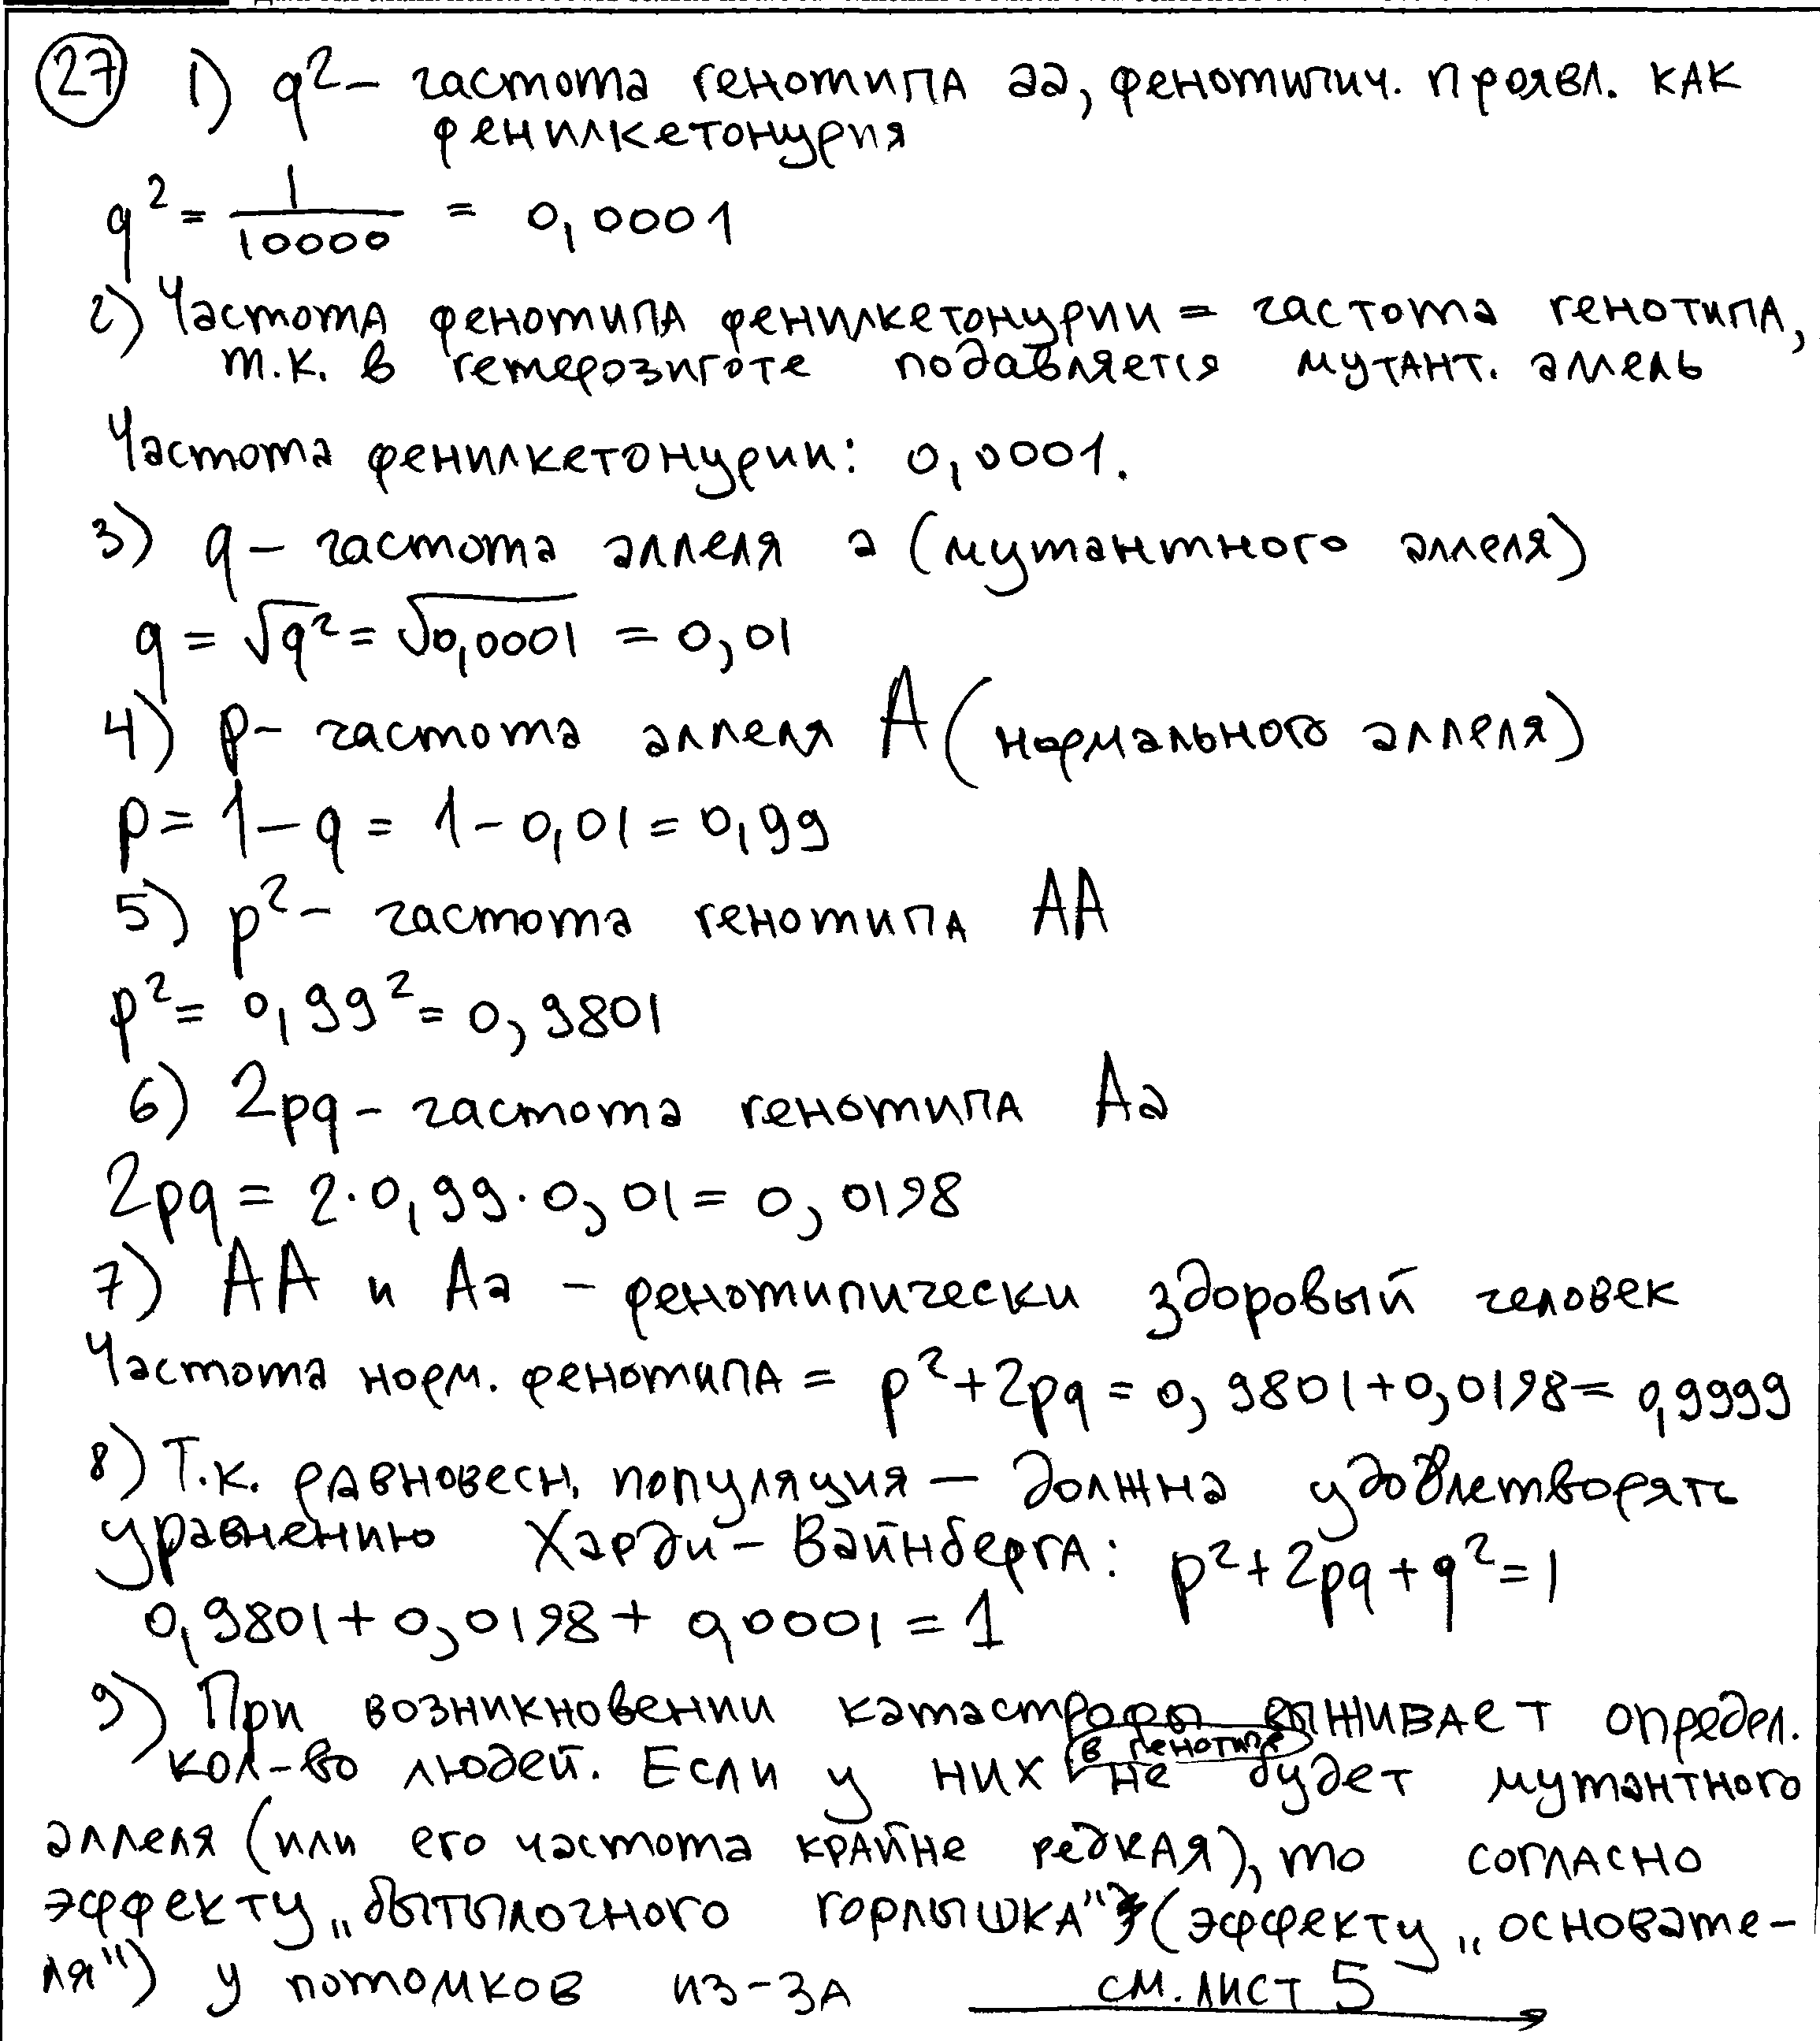 27 1) q² – частота генотипа аа, фенотипич. проявл. как
фенилкетонурия
q² = 1/10000 = 0,0001
2) Частота фенотипа фенилкетонурии = частота генотипа,
т.к. в гетерозиготе подавляется мутант. аллель
Частота фенилкетонурии: 0,0001.
3) q – частота аллеля а (мутантного аллеля)
q = √q² = √0,0001 = 0,01
4) p – частота аллеля А (нормального аллеля)
p = 1 – q = 1 – 0,01 = 0,99
5) p² – частота генотипа АА
p² = 0,99² = 0,9801
6) 2pq – частота генотипа Аа
2pq = 2·0,99·0,01 = 0,0198
7) АА и Аа – фенотипически здоровый человек
Частота норм. фенотипа = p² + 2pq = 0,9801 + 0,0198 = 0,9999
8) Т.к. равновесн. популяция – должна удовлетворять
уравнению Харди – Вайнберга: p² + 2pq + q² = 1
0,9801 + 0,0198 + 0,0001 = 1
9) При возникновении катастрофы выживает определ.
кол-во людей. Если у них в генотипе не будет мутантного
аллеля (или его частота крайне редкая), то согласно
эффекту „бытылочного горлышка" (эффекту „основате-
ля") у потомков из-за см. лист 5